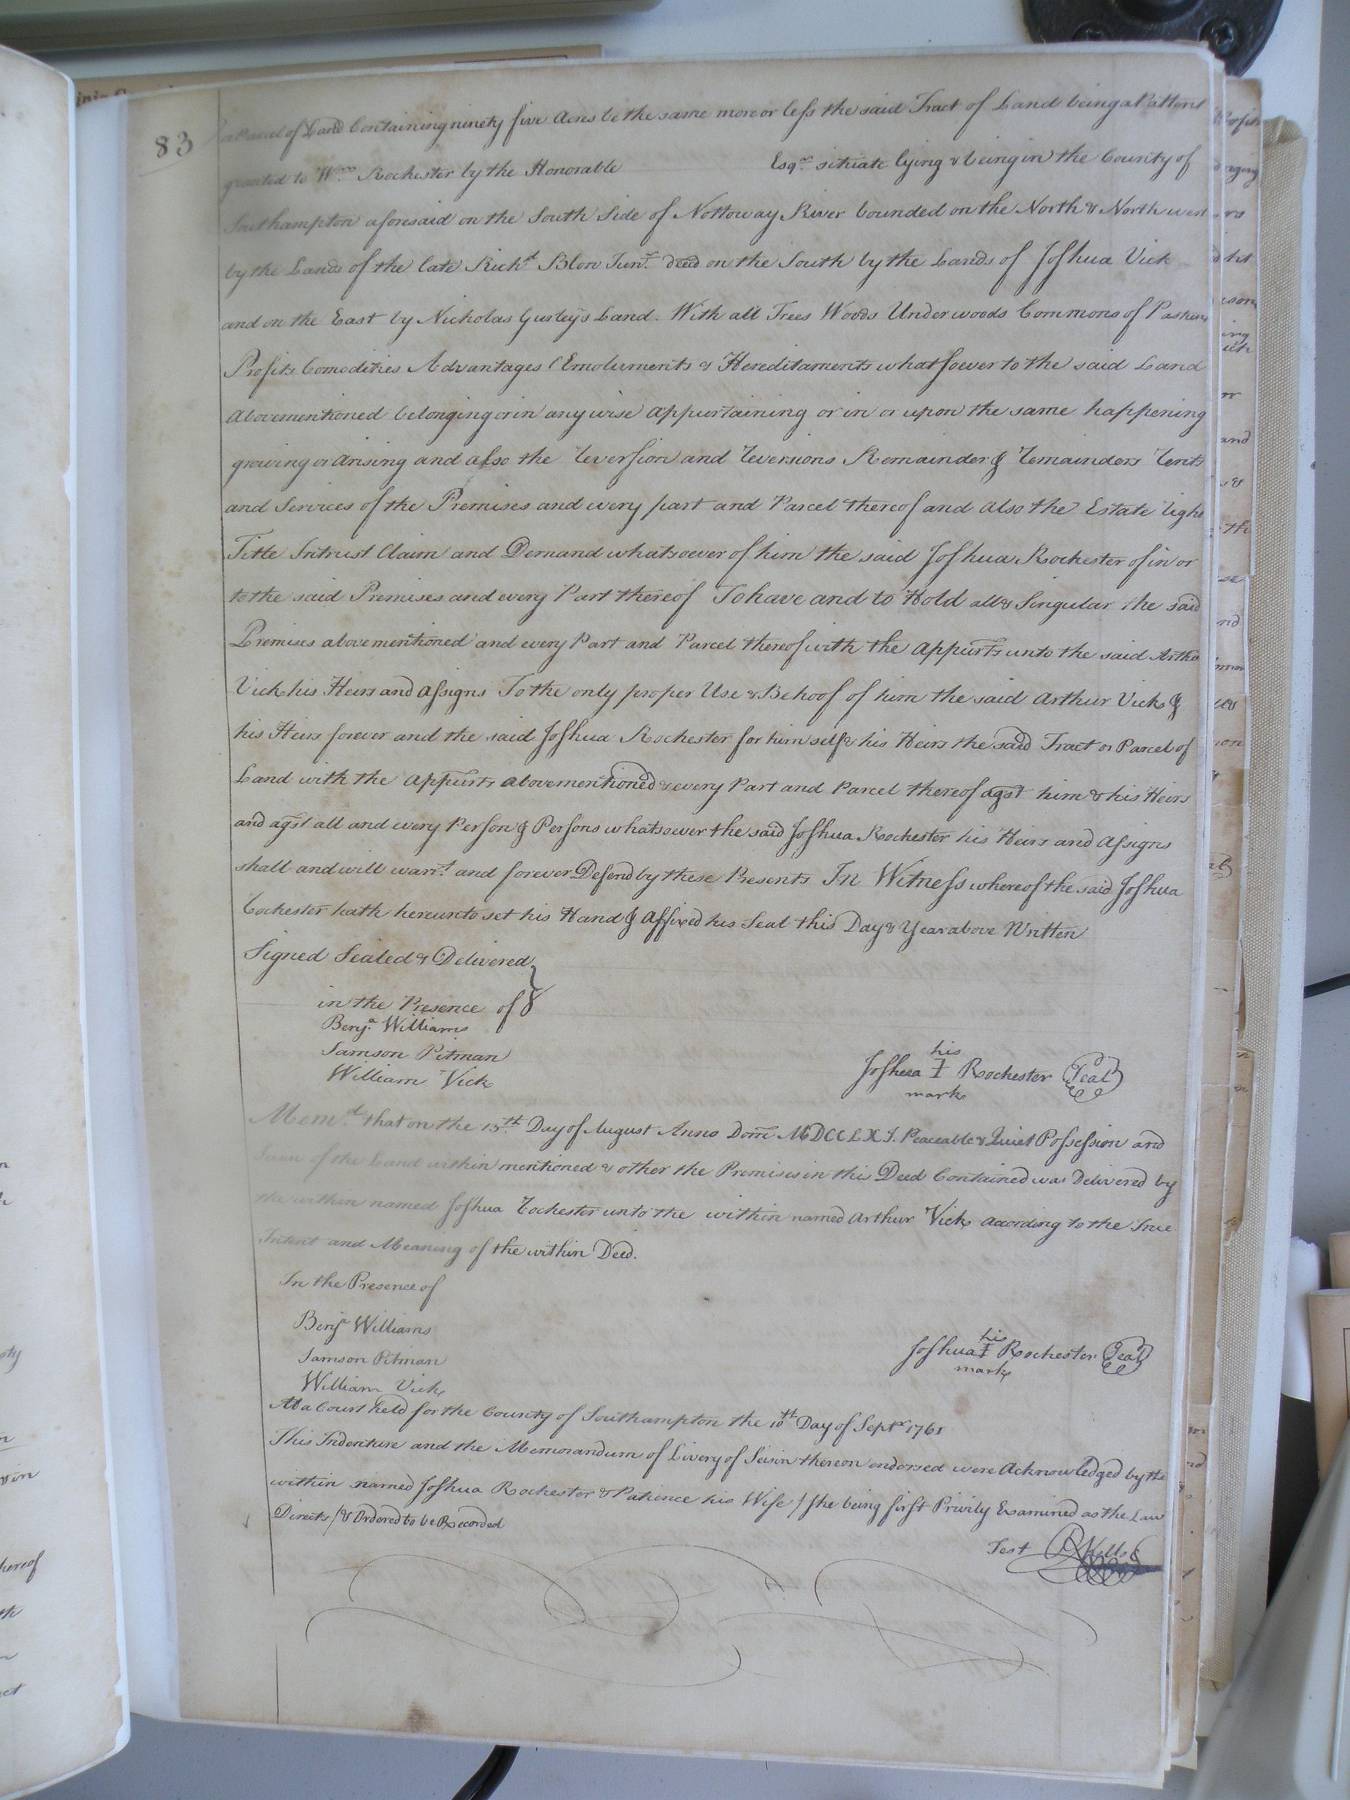 83
a Parcel of Land Containing ninety five Acres be the same more or less the said Tract of Land being a Pattent
granted to Wm. Rochester by the Honorable Esqr. situate lying & being in the County of
Southampton aforesaid on the South Side of Nottoway River bounded on the North & North west
by the Lands of the late Richd. Blow Junr. deed on the South by the Lands of Joshua Vick
and on the East by Nicholas Gurley's Land. With all Trees Woods Underwoods Commons of Pasture
Profits Comodities Advantages Emoluments & Hereditaments whatsoever to the said Land
abovementioned belonging or in any wise appurtaining or in or upon the same happening
growing or arising and also the reversion and reversions Remainder & remainders rents
and Services of the Premises and every part and Parcel thereof and also the Estate right
Title Intrust Claim and Demand whatsoever of him the said Joshua Rochester of in or
to the said Premises and every Part thereof To have and to Hold all & Singular the said
Premises abovementioned and every Part and Parcel thereof with the appurts unto the said Arthur
Vick his Heirs and assigns To the only proper Use & Behoof of him the said Arthur Vick &
his Heirs forever and the said Joshua Rochester for himself & his Heirs the said Tract or Parcel of
Land with the appurts abovementioned & every Part and Parcel thereof agst him & his Heirs
and agst all and every Person & Persons whatsoever the said Joshua Rochester his Heirs and assigns
shall and will warrt. and forever Defend by these Presents In Witness whereof the said Joshua
Rochester hath hereunto set his Hand & affixed his Seal this Day & Year above Written
Signed Sealed & Delivered
in the Presence of
Benja. Williams
Samson Pitman
William Vick
his
Joshua I Rochester Seal
mark
Memd. that on the 15th. Day of August Anno Dom MDCCLXI. Peaceable & Quiet Possession and
Seisin of the Land within mentioned & other the Premises in this Deed Contained was Delivered by
the within named Joshua Rochester unto the within named Arthur Vick according to the True
Intent and Meaning of the within Deed.
In the Presence of
Benja Williams
Samson Pitman
William Vick
his
Joshua I Rochester Seal
mark
At a Court held for the County of Southampton the 10th Day of Septr 1761
This Indenture and the Memorandum of Livery of Seisin thereon endorsed were Acknowledged by the
within named Joshua Rochester & Patience his Wife / she being first Privily Examined as the Law
Directs / & Ordered to be Recorded
Test R Kello